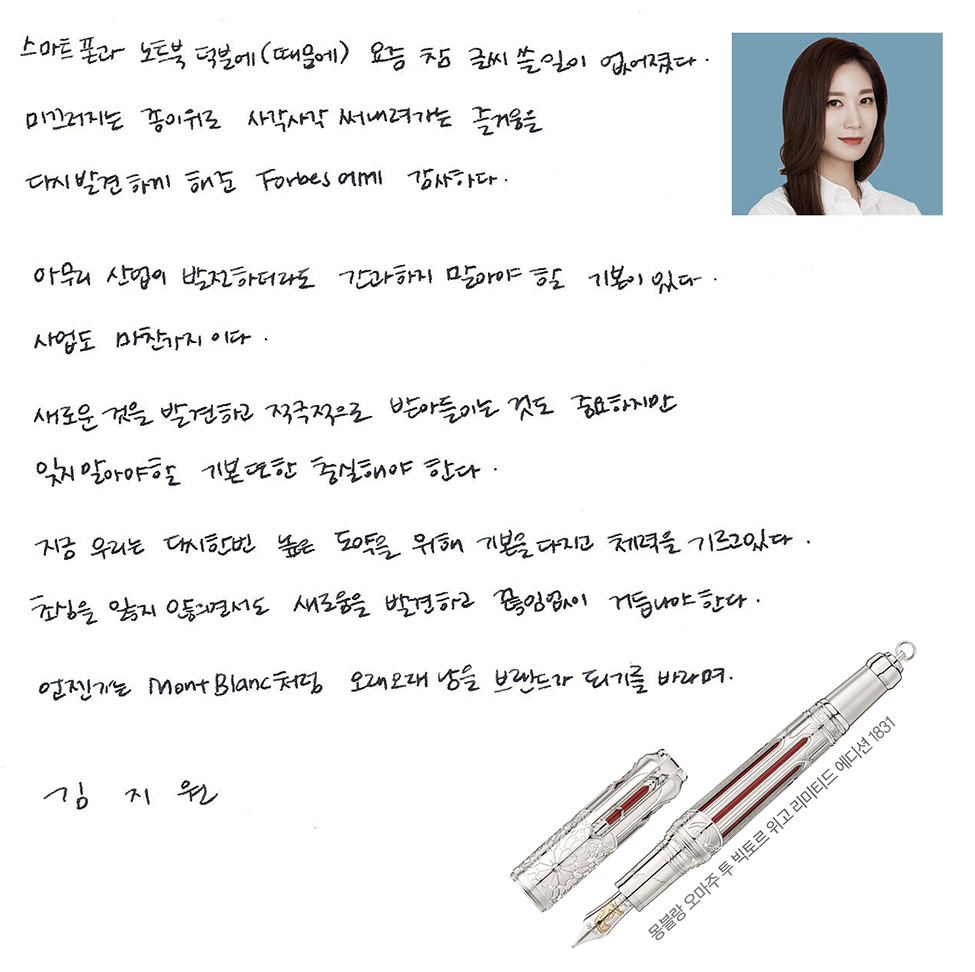 스마트폰과 노트북 덕분에(때문에) 요즘 참 글씨 쓸 일이 없어졌다.
미끄러지는 종이위로 사각사각 써내려가는 즐거움을
다시 발견하게 해준 Forbes에게 감사하다.
아무리 산업이 발전하더라도 간과하지 말아야 할 기본이 있다.
사업도 마찬가지이다.
새로운 것을 발견하고 적극적으로 받아들이는 것도 중요하지만
잊지 말아야 할 기본 또한 충실해야 한다.
지금 우리는 다시한번 높은 도약을 위해 기본을 다지고 체력을 기르고있다.
초심을 잃지 않으면서도 새로움을 발견하고 끊임없이 거듭나야 한다.
언젠가는 MontBlanc처럼 오래오래 남을 브랜드가 되기를 바라며.
김 지 원
몽블랑 오마주 투 빅토르 위고 리미티드 에디션 1831